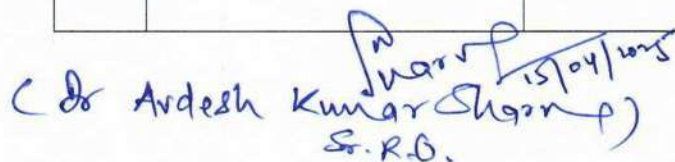 15/04/2025
(Dr Avdesh Kumar Sharma)
Sr. R.O.